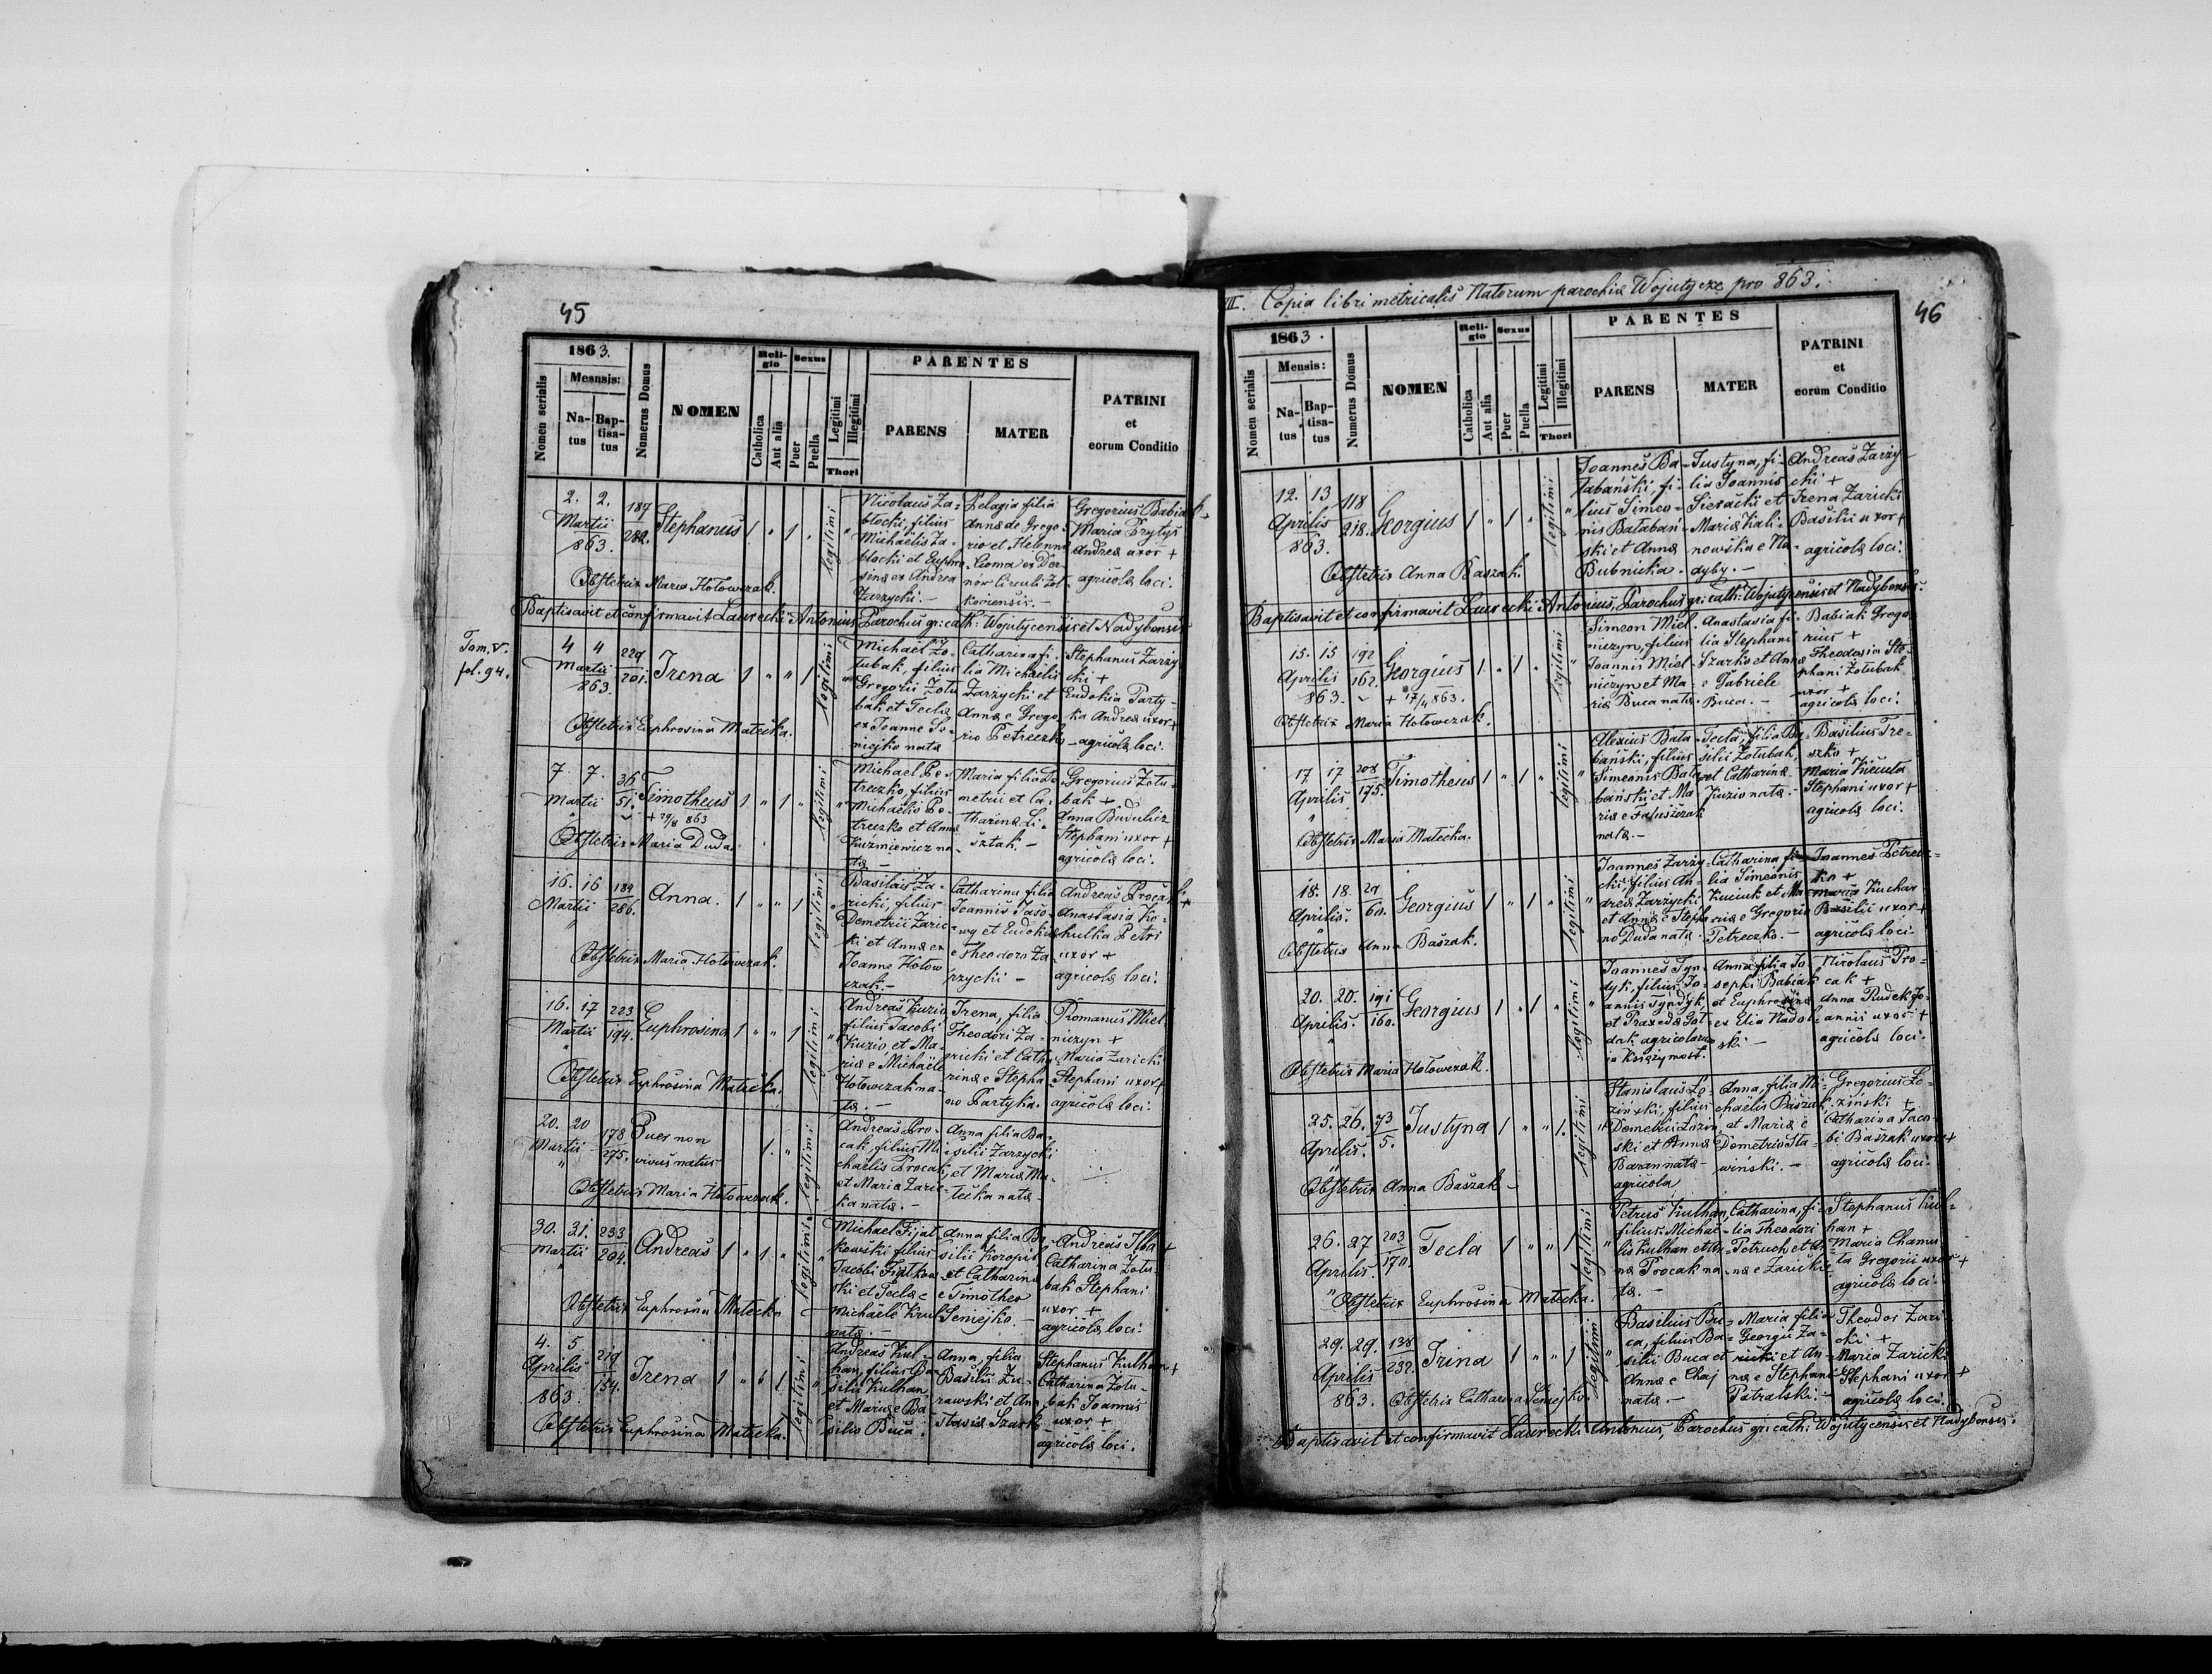 45
1863.
Mesnsis:
Nomen serialis
Na-
tus
Bap-
tisa-
tus
Numerus Domus
NOMEN
Reli-
gio
Catholica
Aut alia
Sexus
Puer
Puella
Legitimi
Illegitimi
Thori
PARENTES
PARENS
MATER
PATRINI
et
eorum Conditio
2. 2.
Martii
863.
187
Stephanus
1 " 1 "
legitimi
Nicolaus Za=
błocki, filius
Michaëlis Za-
błocki et Euphro-
sina ex Andrea
Zarzycki.-
Pelagia filia
Anna de Grego-
rio et Helenna
Koma ex Dor-
now Circuli Zol-
koviensis.-
Gregorius Babiak
Maria Prytys
Andrea uxor +
agricola loci.
Obstetrix Maria Hołowczak.
Baptisavit et confirmavit Laurecki Antonius, Parochus gr: cath: Wojutycensis et Nadybensis
Tom. V.
fol. 94.
4 4
Martii
863.
229
201.
Irena
1 " " 1
legitimi
Michaël Żo-
łubak, filius
Gregorii Żołu
bak et Tecla
ex Joanne Se-
niejko nata
Catharina fi-
lia Michaëlis
Zarzycki et
Anna e Grego
rio Petreczko
Stephanus Zarzy
cki +
Eudokia Party-
ka Andrea uxor +
agricola loci.
Obstetrix Euphrosina Matecka.
7. 7.
Martii
"
36
51.
Timotheus
+ 29/8 863
1 " 1 "
legitimi
Michael Pe-
treczko, filius
Michaëlis Pe-
treczko et Anna
Kuźmiewicz na
ta -
Maria filia De
metrii et Ca-
tharina Li-
sztak. -
Gregorius Żołu-
bak +
Anna Budulicz
Stephani uxor +
agricola loci.
Obstetrix Maria Duda.
16. 16
Martii
"
184
286.
Anna.
1 " " 1
legitimi
Basilius Za-
ricki, filius
Demetrii Zaric
ki et Anna ex
Joanne Hołow
czak.-
Catharina filia
Joannis
et Eudokia
e Theodoro Za
rzycki -
Andreas Procak
Anastasia Ko-
hulka Petri
uxor +
agricola loci.
Obstetrix Maria Hołowczak.
16. 17
Martii
"
223
194.
Euphrosina
1 " " 1
legitimi
Andreas Kuzio
filius Jacobi
Kuzio et Ma-
ria e Michaële
Hołowczak na-
ta. -
Irena, filia
Theodori Za-
ricki et Catha
rina e Stepha
no Partyka.
Romanus Miel
niczyn +
Maria Zaricki
Stephani uxor +
agricola loci.
Obstetrix Euphrosina Matecka.
20. 20
Martii
"
178
275.
Puer non
vivus natus
1. "
legitimi
Andreas Pro-
cak, filius Mi-
chaëlis Procak,
et Maria Zaric-
ka nata. -
Anna filia Ba-
silii Zarzycki
et Maria Ma-
tecka nata -
Obstetrix Maria Hołowczak.
30. 31.
Martii
"
233
204.
Andreas
1 " 1. "
legitimi
Michael Fijał
kowski filius
Jacobi Fijałkow
ski et Tecla e
Michaële Krul
nata. -
Anna filia Ba-
silii Koropil
et Catharina
e Timotheo
Seniejko. -
Andreas +
Catharina Żołu-
bak Stephani
uxor +
agricola loci.
Obstetrix Euphrosina Matecka
4. 5
Aprilis
863
219
54.
Irena
1 " " 1
legitimi
Andreas Kul-
han, filius Ba-
silii Kulhan,
et Maria e Ba
silio Buca.
Anna, filia
Basilii Żu-
rawski et Ana
stasia Szark
Stephanus Kulhan +
Catharina Żołu-
bak Joannis
uxor +
agricola loci.
Obstetrix Euphrosina Matecka.
III. Copia libri metricalis Natorum parochia Wojutycze pro 863.
46
1863.
Mensis:
Nomen serialis
Na-
tus
Bap-
tisa-
tus
Numerus Domus
NOMEN
Reli-
gio
Catholica
Aut alia
Sexus
Puer
Puella
Legitimi
Illegitimi
Thori
PARENTES
PARENS
MATER
PATRINI
et
eorum Conditio
12. 13
Aprilis
863.
118
218.
Georgius
1 " 1 "
legitimi
Joannes Ba-
łabański, fi-
lius Simeo-
nis Bałaban-
ski et Anna
Bubnicka.
Justyna, fi-
lia Joannis
Sieracki et
Maria Kali-
nowska e Na-
dyby. -
Andreas Zarzy-
cki +
Irena Zaricki
Basilii uxor +
agricola loci.
Obstetrix Anna Baszak.
Baptisavit et confirmavit Laurecki Antonius, Parochus gr: cath: Wojutycensis et Nadybensis.
15. 15
Aprilis
863.
192
162.
Georgius
+ 17/4 863.
1 " 1 "
legitimi
Simeon Miel-
niczyn, filius
Joannis Miel-
niczyn et Ma-
ria Buca nata.
Anastasia fi-
lia Stephani
Szarko et Anna
e Gabriele
Buca. -
Babiak Grego
rius +
Theodosia Ste-
phani Żołubak
uxor +
agricola loci.
Obstetrix Maria Hołowczak.
17 17
Aprilis
"
208
175.
Timotheus
1 " 1 "
legitimi
Alexius Bała-
bański, filius
Simeonis Bała
bański et Ma
ria e
nata. -
Tecla, filia Ba-
silii Żołubak,
et Catharina
Kuzio nata. -
Basilius Tre-
szko +
Maria Kiecuta
Stephani uxor +
agricola loci.
Obstetrix Maria Matecka.
18. 18
Aprilis.
"
29
60.
Georgius
1 " 1 "
legitimi
Joannes Zarzy-
cki filius An-
drea Zarzycki
et Anna e Stepha
no Duda nata.
Catharina fi-
lia Simeonis
Kuciuk et Ma-
ria e Gregorio
Petreczko. -
Joannes Petrecz-
ko +
Maria Kuchar
Basilii uxor +
agricola loci.
Obstetrix Anna Baszak.
20. 20.
Aprilis.
"
191
160.
Georgius
1 " 1 "
legitimi
Joannes Tyn-
dyk, filius Jo-
annis Tyndyk
et Praxeda Got-
dak agricolarum
ia Księżymost.
Anna filia Jo-
sephi Babiak
et Euphrosina
ex Elia Nadol-
ski -
Nicolaus Pro-
cak +
Anna Rudek Jo-
annis uxor +
agricola loci.
Obstetrix Maria Hołowczak.
25. 26.
Aprilis.
"
73
5.
Justyna
1 " " 1.
legitimi
Stanislaus Ło-
ziński, filius
Demetrii Łozin
ski et Anna
Baran nata-
agricola
Anna, filia Mi-
chaëlis Baszak,
et Maria e
Demetrio Sta-
wiński. -
Gregorius Ło-
ziński +
Catharina Jaco-
bi Baszak uxor +
agricola loci.
Obstetrix Anna Baszak -
26. 27
Aprilis.
"
203
170.
Tecla
1 " " 1
legitimi
Petrus Kulhan,
filius Michaë-
lis Kulhan et An
na Procak na
ta. -
Catharina, fi-
lia Theodori
Petruch et An
na e Zaricki
Stephanus Kul-
han +
Maria Chamu-
la Gregorii uxor +
agricola loci.
Obstetrix Euphrosina Matecka.
29. 29.
Aprilis
863.
138
232.
Irina
1 " " 1
legitimi
Basilius Bu-
ca, filius Ba-
silii Buca et
Anna e Chaj
nata -
Maria filia
Georgii Za-
ricki et An-
na e Stephani
Patralski. -
Theodor Zari-
cki +
Maria Zaricki
Stephani uxor +
agricola loci.
Obstetrix Catharina Seniejko.
Baptisavit et confirmavit Laurecki Antonius, Parochus gr: cath: Wojutycensis et Nadybensis.